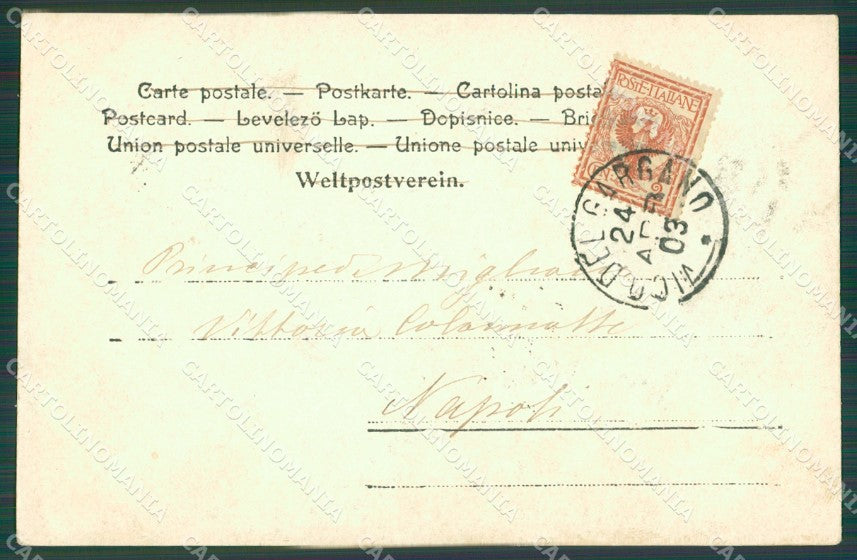 Carte postale. — Postkarte. — Cartolina posta
Postcard. — Levelező Lap. — Dopisnice. — Bri
Union postale universelle. — Unione postale univ
Weltpostverein.
POSTE·ITALIANE
2
VICO DEL GARGANO
24
APR
03
*
Vittoria
Napoli
CARTOLINOMANIA